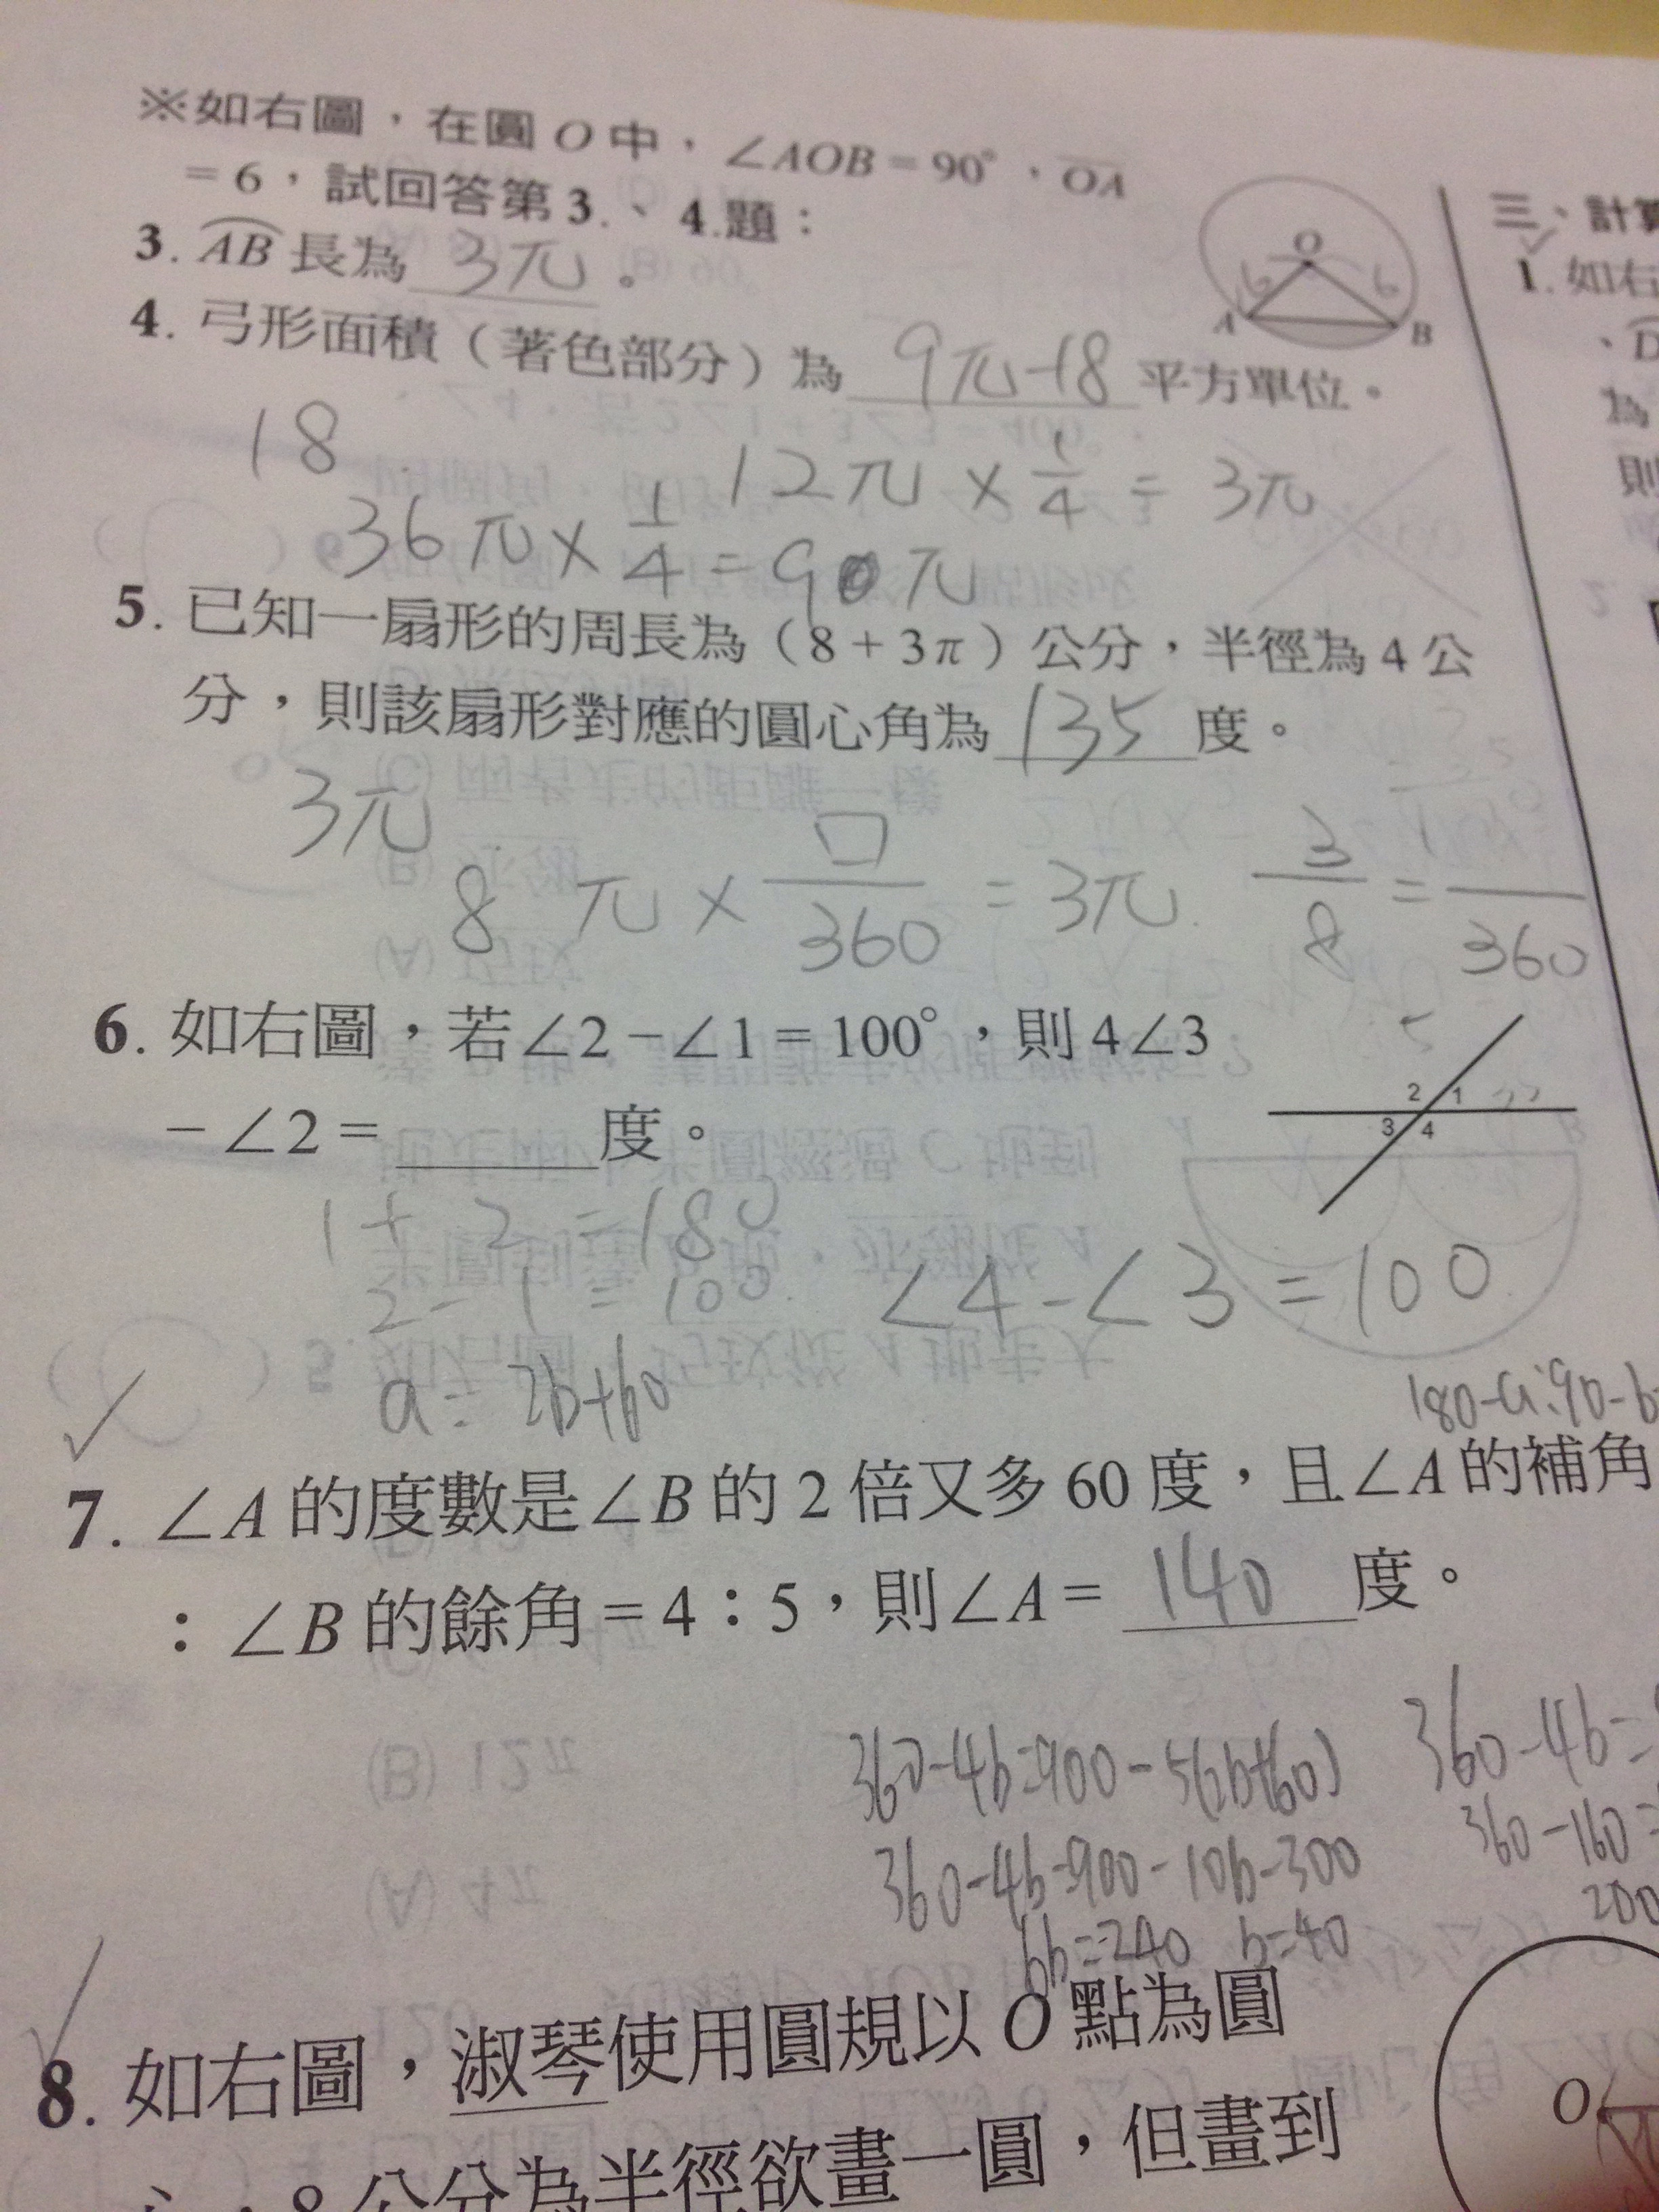 ※如右圖，在圓 O 中，∠AOB = 90°，OA
= 6，試回答第 3.、4.題：
3. AB 長為 3π 。
4. 弓形面積（著色部分）為 9π-18 平方單位。
O
6 6
A B
18
12π × 1/4 = 3π
36π × 1/4 = 9π
5. 已知一扇形的周長為（8 + 3π）公分，半徑為 4 公
分，則該扇形對應的圓心角為 135 度。
3π
8 π × □/360 = 3π 3/8 = /360
6. 如右圖，若∠2 − ∠1 = 100°，則 4∠3
− ∠2 = ______ 度。
2 1
3 4
1 + 2 = 180
2 - 1 = 100 ∠4 - ∠3 = 100
a = 2b+60
180-a:90-b
7. ∠A 的度數是∠B 的 2 倍又多 60 度，且∠A 的補角
：∠B 的餘角 = 4：5，則∠A = 140 度。
360-4b=900-5(2b+60) 360-4b=
360-4b=900-10b-300 360-160=
6b=240 b=40 200
8. 如右圖，淑琴使用圓規以 O 點為圓
心，8 公分為半徑欲畫一圓，但畫到
O
三、計算
1. 如右
、D
為
則